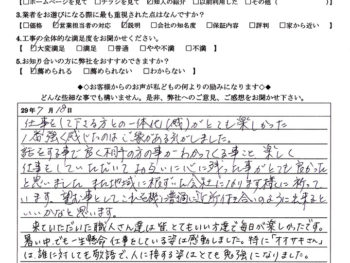 3.業者をお選びになる際に最も重視された点はなんですか?
[ ]価格 [✓]営業担当者の対応 [ ]会社の知名度 [ ]保証内容 [ ]評判 [ ]家から近い [ ]
4.工事の全体的な満足度をお聞かせください。
[✓]大変満足 [ ]満足 [ ]普通 [ ]やや不満 [ ]不満
5.お知り合いの方に弊社をおすすめできますか?
[✓]薦められる [ ]薦められない [ ]わからない
◆◇お客様からのお声が私どもの何よりの励みになります◇◆
どんな些細な事でも構いません。是非、弊社へのご意見、ご感想をお聞かせください。
29年7月18日
仕事をして下さる方との一体化(感)がとても楽しかった
1番強く感じたのはご縁がある気がしました。
話をする事で良く相手の方の事がわかってくる事と 楽しく
仕事をしていただいて お互いに心に残った事がとても良かった
と思いました
来ていただいた職人さん達は皆とてもいい方達で毎日が楽しかったです。
暑い中でも一生懸命仕事をしている姿は感動しました。特に「オオサキさん」
は、誰に対しても敬語で、人に接する姿はとても勉強になりました。